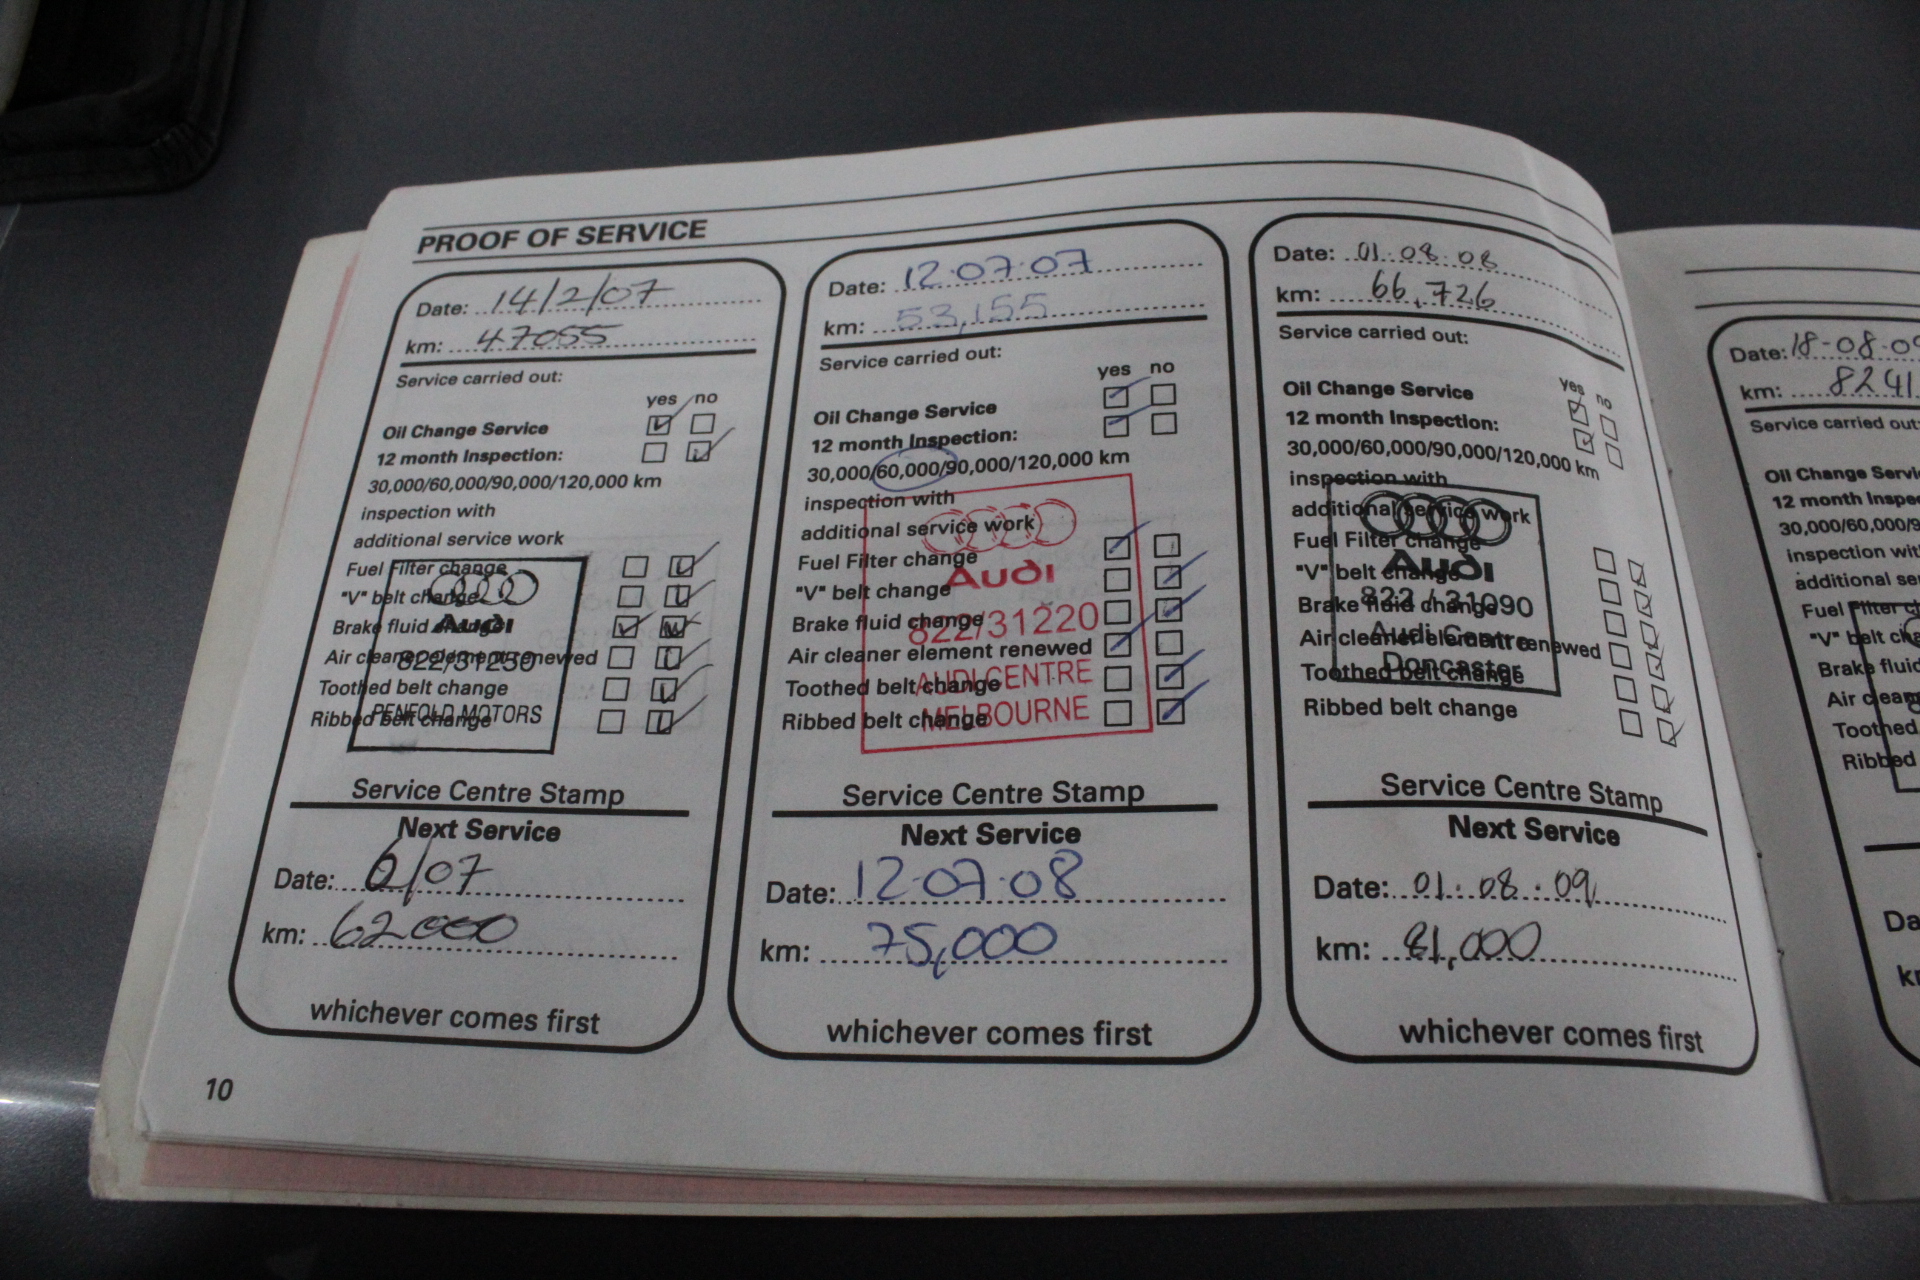 PROOF OF SERVICE
Date: 14/2/07
km: 47055
Service carried out:
yes no
Oil Change Service
12 month Inspection:
30,000/60,000/90,000/120,000 km
inspection with
additional service work
Fuel Filter change
"V" belt change
Brake fluid change
Air cleaner element renewed
Toothed belt change
Ribbed belt change
Audi
822/31250
PENFOLD MOTORS
Service Centre Stamp
Next Service
Date: 6/07
km: 62000
whichever comes first
10
Date: 12.07.07
km: 53,155
Service carried out:
yes no
Oil Change Service
12 month Inspection:
30,000/60,000/90,000/120,000 km
inspection with
additional service work
Fuel Filter change
"V" belt change
Brake fluid change
Air cleaner element renewed
Toothed belt change
Ribbed belt change
Audi
822/31220
AUDI CENTRE
MELBOURNE
Service Centre Stamp
Next Service
Date: 12.07.08
km: 75,000
whichever comes first
Date: 01.08.08
km: 66,726
Service carried out:
yes no
Oil Change Service
12 month Inspection:
30,000/60,000/90,000/120,000 km
inspection with
additional service work
Fuel Filter change
"V" belt change
Brake fluid change
Air cleaner element renewed
Toothed belt change
Ribbed belt change
Audi
822 / 31090
Audi Centre
Doncaster
Service Centre Stamp
Next Service
Date: 01.08.09
km: 81,000
whichever comes first
Date: 18-08-0
km: 8241
Service carried out
Oil Change Servi
12 month Inspe
30,000/60,000/9
inspection wit
additional se
Fuel Filter c
"V" belt cha
Brake fluid
Air clean
Toothed
Ribbed
Da
k